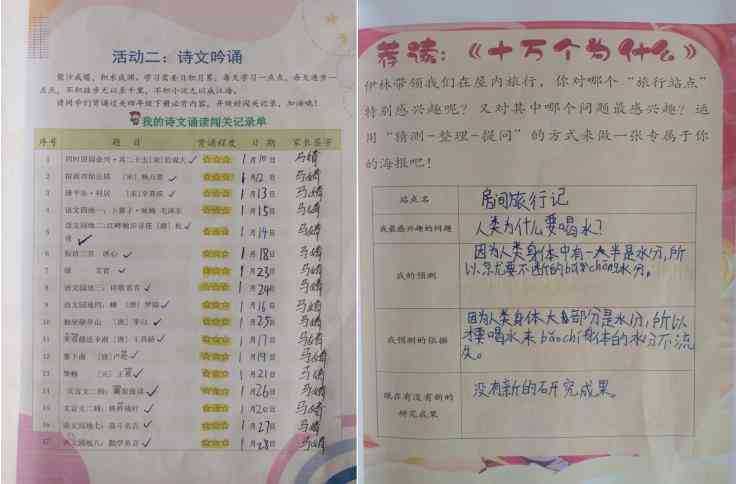 活动二：诗文吟诵
聚沙成塔，积水成渊，学习需要日积月累，每天学习一点点，每天进步一
点点，不积跬步无以至千里，不积小流无以成江海。
请同学们背诵过关四年级下册必背内容，并做好闯关记录，加油哦！
我的诗文诵读闯关记录单
序号 题 目 背诵程度 日 期 家长签字
1 四时田园杂兴·其二十五[宋]范成大✓ ☆☆☆ 1月10日 马婧
2 宿新市徐公店 [宋]杨万里 ✓ ☆☆☆ 1月12日 马婧
3 清平乐·村居 [宋]辛弃疾 ✓ ☆☆☆ 1月13日 马婧
4 语文园地一：卜算子·咏梅 毛泽东 ☆☆☆ 1月15日 马婧
5 语文园地二:江畔独步寻花 [唐] 杜 ✓ ☆☆☆ 1月14日 马婧
甫 ✓
6 短诗三首 冰心 ✓ ☆☆☆ 1月18日 马婧
7 绿 艾青 ✓ ☆☆☆ 1月23日 马婧
8 语文园地三：诗歌名言 ✓ ☆☆☆ 1月24日 马婧
9 语文园地四：蜂 [唐] 罗隐 ✓ ☆☆☆ 1月16日 马婧
10 独坐敬亭山 [唐] 李白 ✓ ☆☆☆ 1月25日 马婧
11 芙蓉楼送辛渐 [唐] 王昌龄 ✓ ☆☆☆ 1月17日 马婧
12 塞下曲 [唐]卢纶 ✓ ☆☆☆ 1月19日 马婧
13 墨梅 [元] 王冕 ✓ ☆☆☆ 1月21日 马婧
14 文言文二则：囊萤夜读 ✓ ☆☆☆ 1月26日 马婧
15 文言文二则：铁杵成针 ✓ ☆☆☆ 1月20日 马婧
16 语文园地七：奋斗名言 ✓ ☆☆☆ 1月27日 马婧
17 语文园地八：勤学名言 ✓ ☆☆☆ 1月28日 马婧
荐读：《十万个为什么》
伊林带领我们在屋内旅行，你对哪个“旅行站点”
特别感兴趣呢？又对其中哪个问题最感兴趣？运
用“猜测－整理－提问”的方式来做一张专属于你
的海报吧！
站点名 房间旅行记
我最感兴趣的问题 人类为什么要喝水？
我的预测 因为人类身体中有一大半是水分，所
以，就要不断的bǔ chōng水分。
我预测的依据 因为人类身体大部分是水分，所以
要喝水来bǎo chí身体的水分不流
失。
现在有没有新的 没有新的研究成果。
研究成果